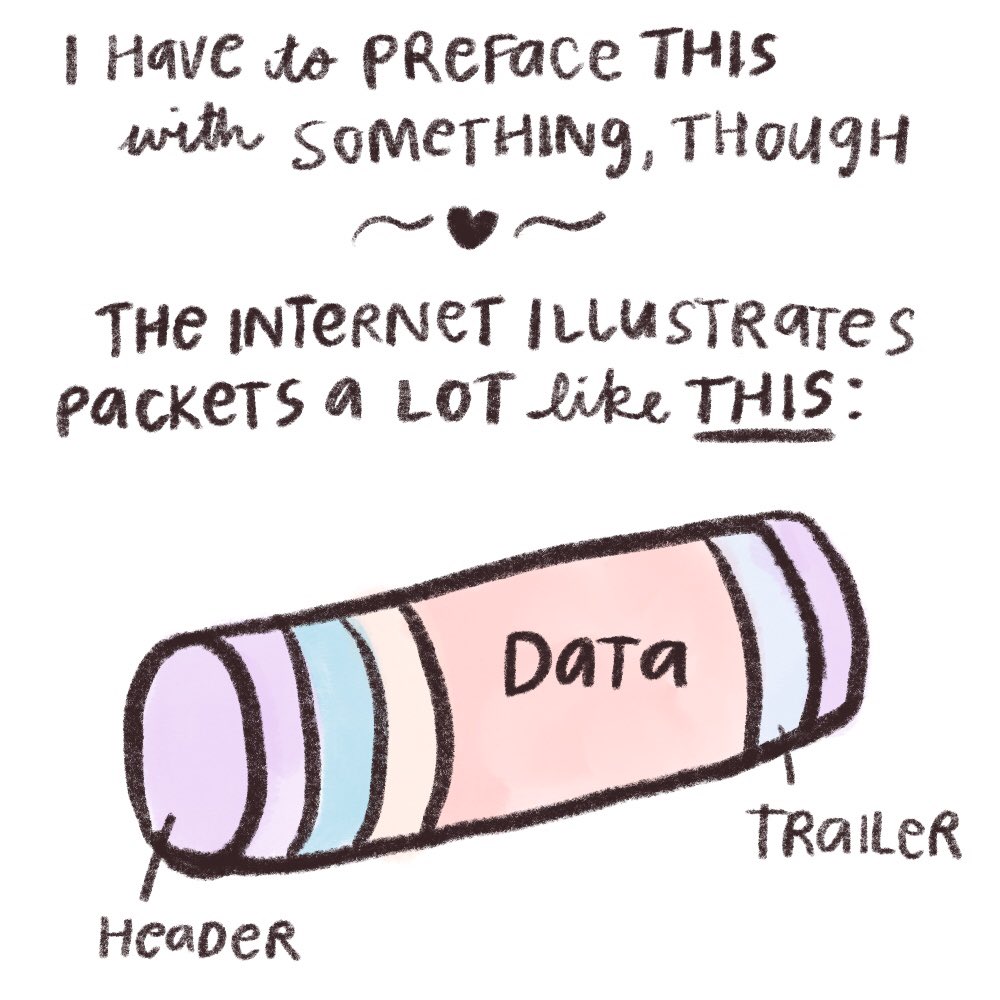 I HAVE to PREFACE THIS
with SOMETHING, THOUGH
THE INTERNET ILLUSTRATES
PACKETS A LOT like THIS:
DATA
TRAILER
HEADER